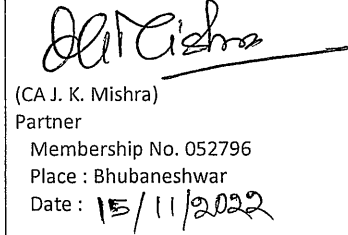 JK Mishra
(CA J. K. Mishra)
Partner
Membership No. 052796
Place : Bhubaneshwar
Date : 15/11/2022